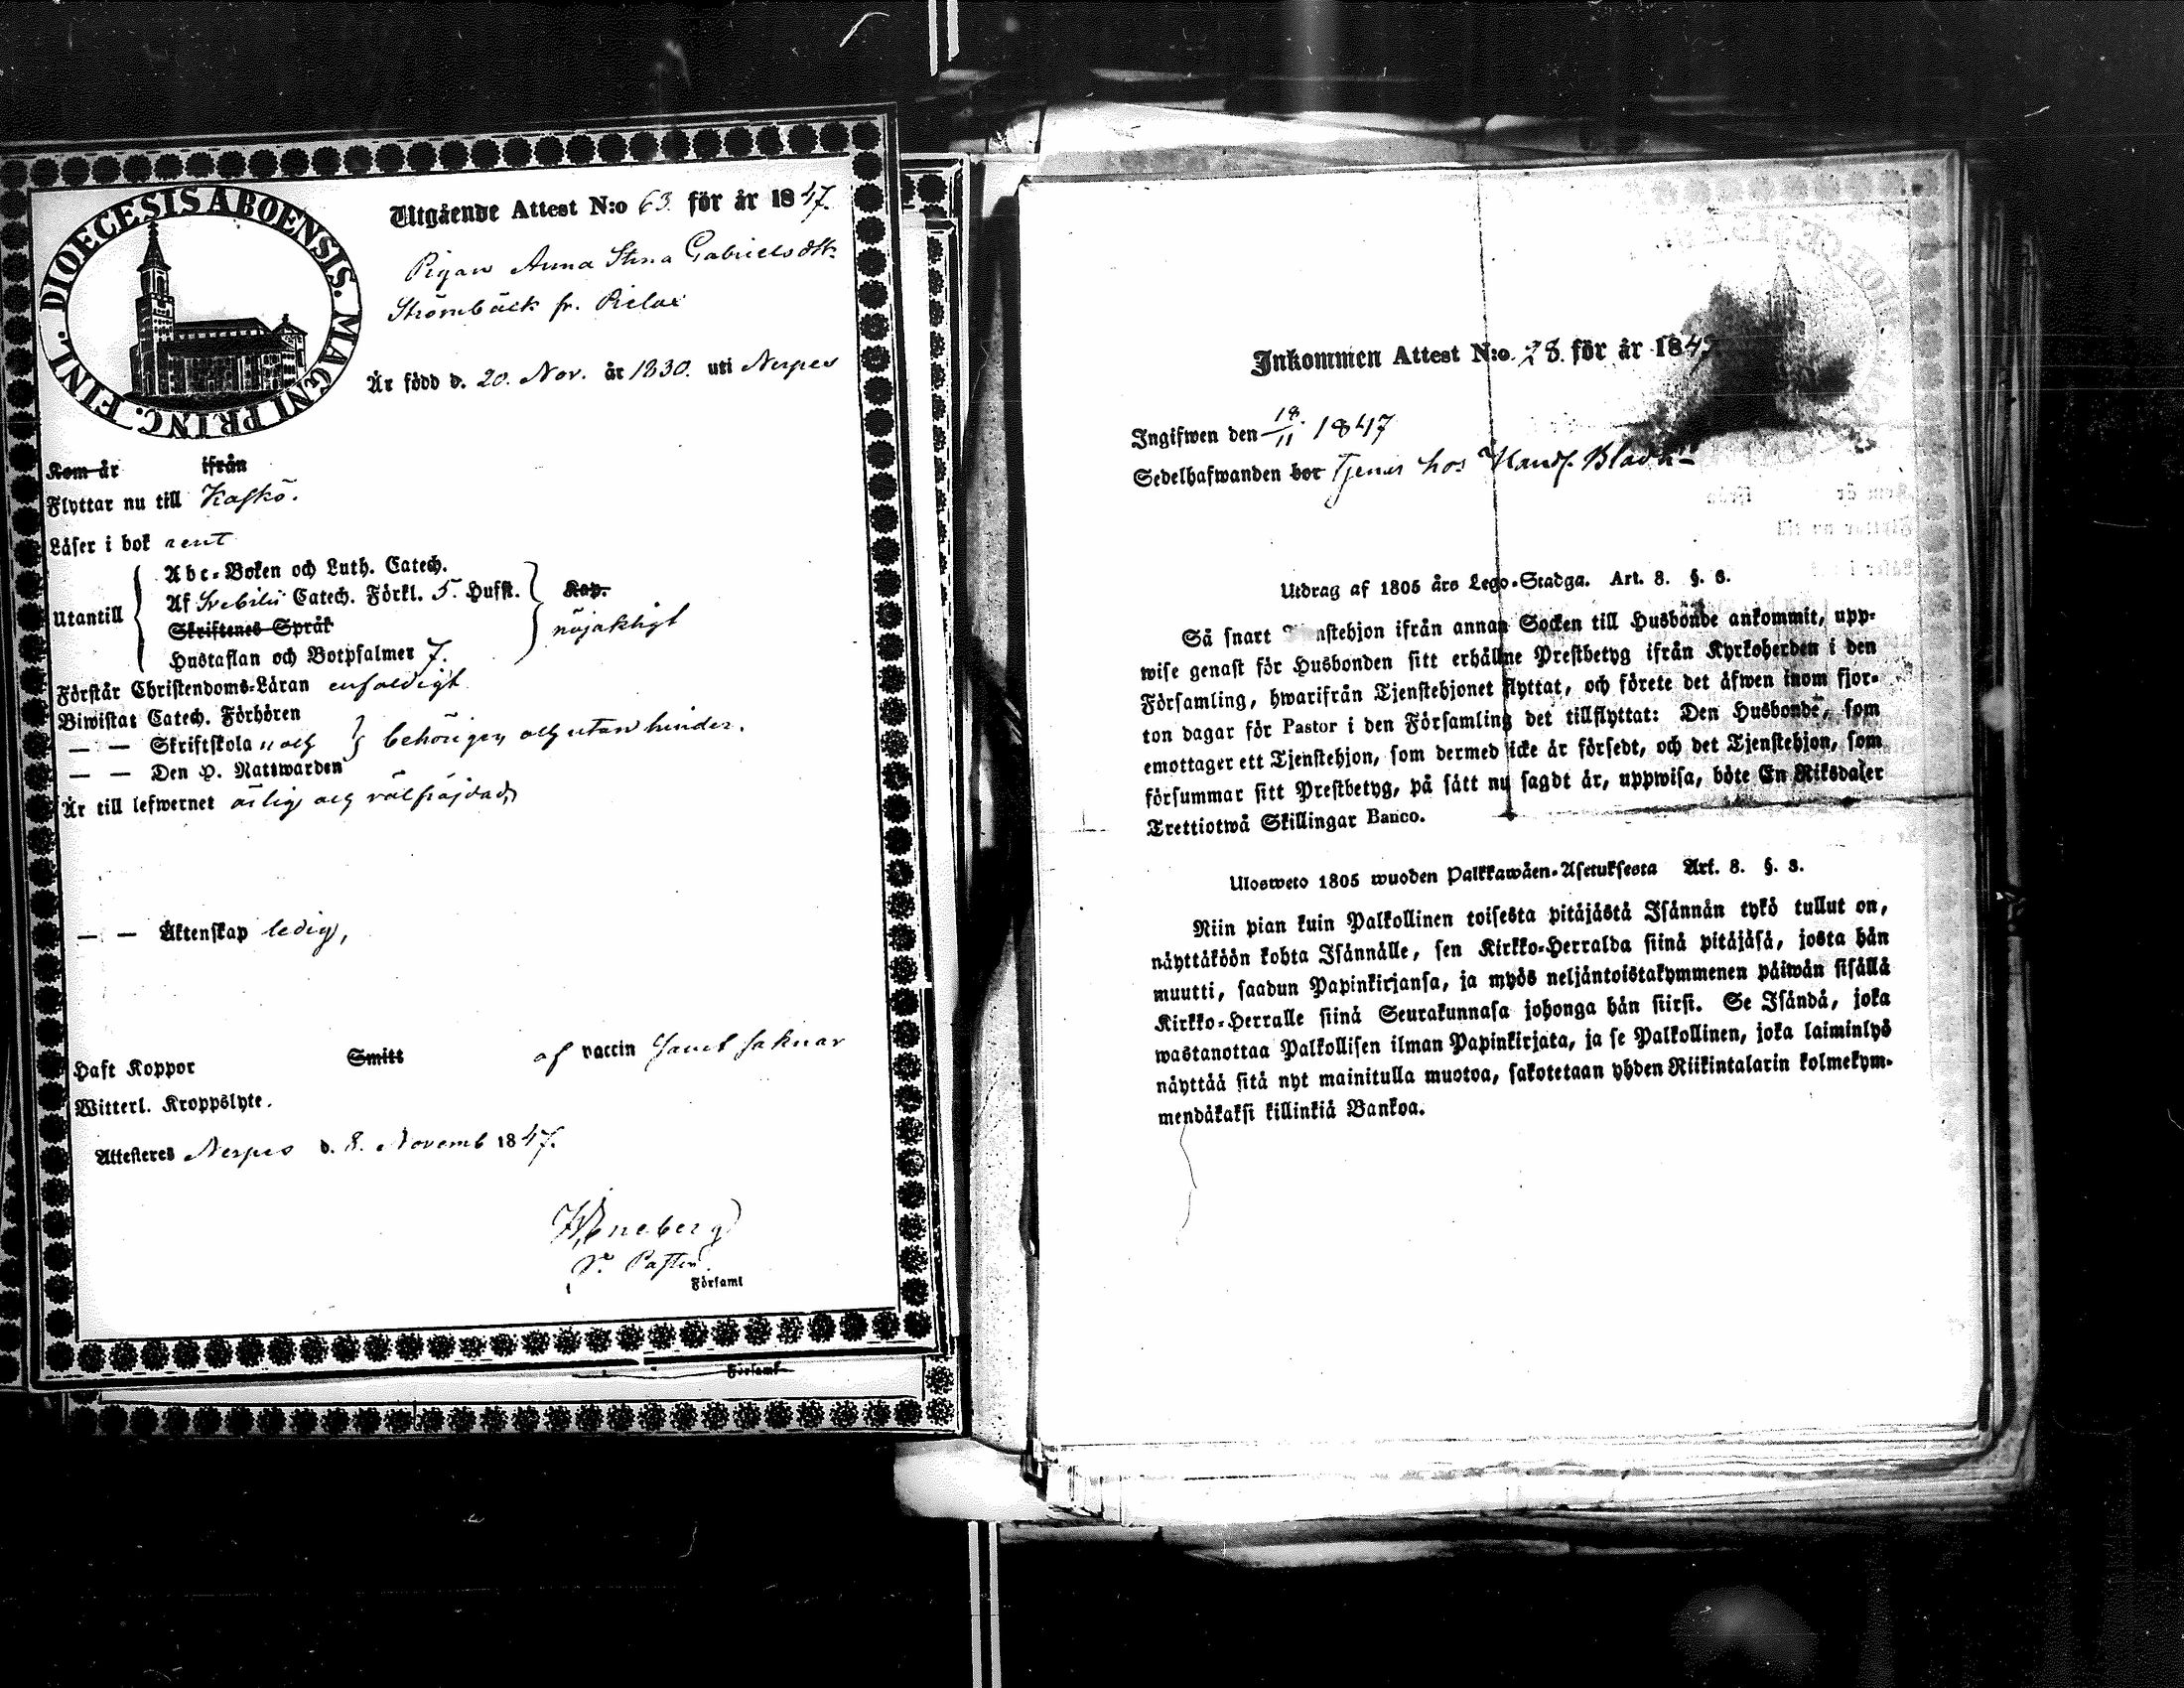 DIOECESIS ABOENSIS. MAGNI PRINC. FINL.
Utgående Attest N:o 63. för år 1847.
Pigan Anna Stina Gabrielsdtr
Strömbäck fr. Pielax
Är född d. 20. Nov. år 1830. uti Nerpes
Kom år ifrån
Flyttar nu till Kaskö.
Läser i bok rent
Utantill
Abc-Boken och Luth. Catech.
Af Svebilii Catech. Förkl. 5. Hufst.
Skriftenes Språk
Hustaflan och Botpsalmer 7.
Kap.
nöjaktigt
Förstår Christendoms-Läran enfaldigt
Biwistat Catech. Förhören
— — Skriftskola och
— — Den H. Nattwarden
behörigen och utan hinder.
Är till lefwernet ärlig och välfräjdad,
— — Äktenskap ledig,
Haft Koppor Smitt af vaccin samt saknar
Witterl. Kroppslyte.
Attesteres Nerpes d. 8. Novemb 1847.
Eneberg
Past
Församl
Församl
Inkommen Attest N:o 28. för år 184
Ingifwen den 18/11 1847
Sedelhafwanden bor tjenar hos Handl. Bladh
Utdrag af 1805 års Lego-Stadga. Art. 8. §. 3.
Så snart Tjenstehjon ifrån annan Socken till Husbonde ankommit, upp-
wise genast för Husbonden sitt erhållne Prestbetyg ifrån Kyrkoherden i den
Församling, hwarifrån Tjenstehjonet flyttat, och förete det äfwen inom fjor-
ton dagar för Pastor i den Församling det tillflyttat: Den Husbonde, som
emottager ett Tjenstehjon, som dermed icke är försedt, och det Tjenstehjon, som
försummar sitt Prestbetyg, på sätt nu sagdt är, uppwisa, böte En Riksdaler
Trettiotwå Skillingar Banco.
Ulosweto 1805 wuoden Palkkawäen-Asetuksesta Art. 8. §. 3.
Niin pian kuin Palkollinen toisesta pitäjästä Isännän tykö tullut on,
näyttäköön kohta Isännälle, sen Kirkko-Herralda siinä pitäjäsä, josta hän
muutti, saadun Papinkirjansa, ja myös neljäntoistakymmenen päiwän sisällä
Kirkko-Herralle siinä Seurakunnasa johonga hän siirsi. Se Isändä, joka
wastanottaa Palkollisen ilman Papinkirjata, ja se Palkollinen, joka laiminlyö
näyttää sitä nyt mainitulla muotoa, sakotetaan yhden Riikintalarin kolmekym-
mendäkaksi killinkiä Bankoa.